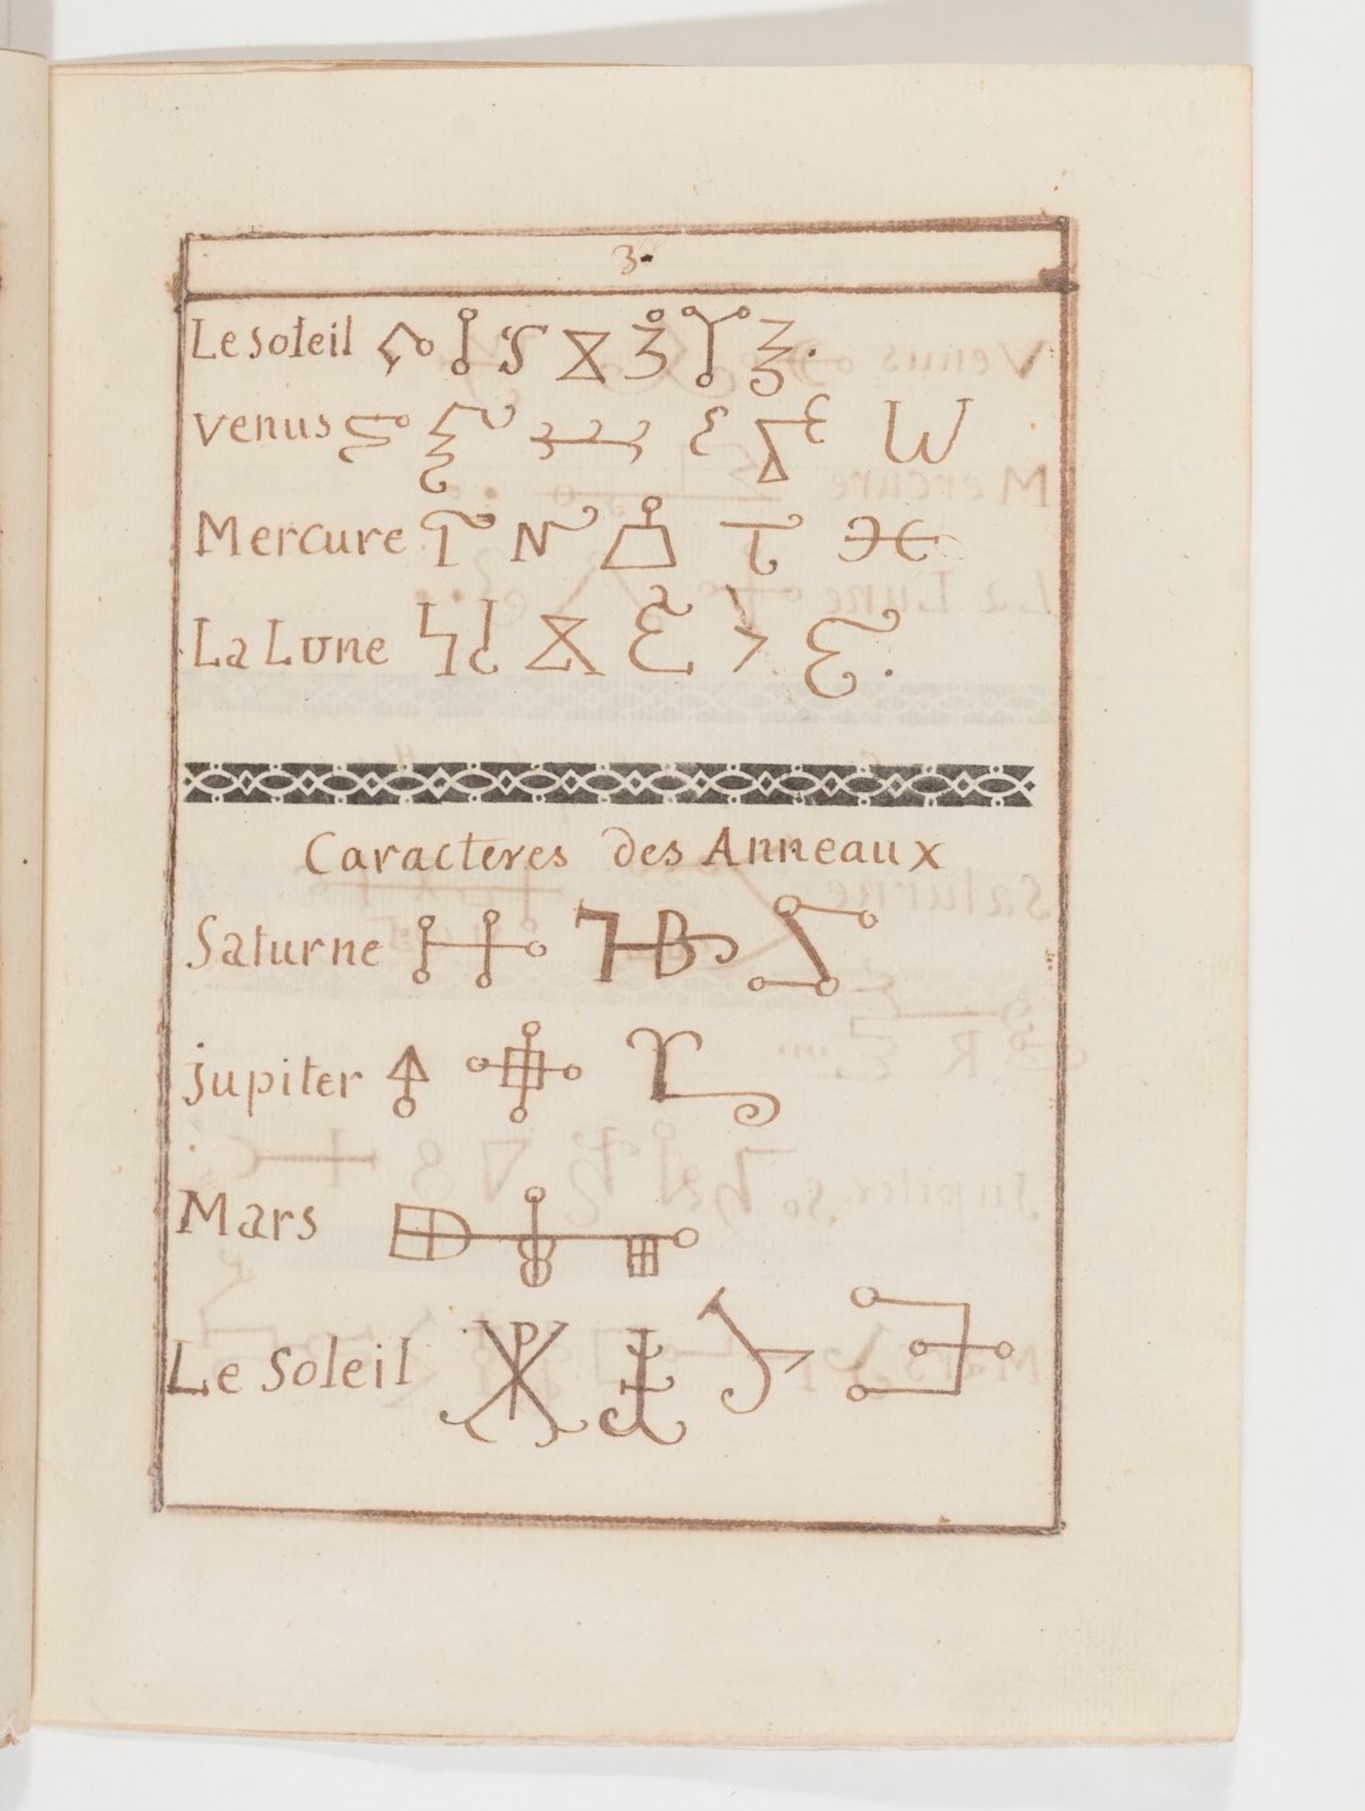 3.
Le soleil
Venus
Mercure
La Lune
Caracteres des Anneaux
Saturne
jupiter
Mars
Le Soleil